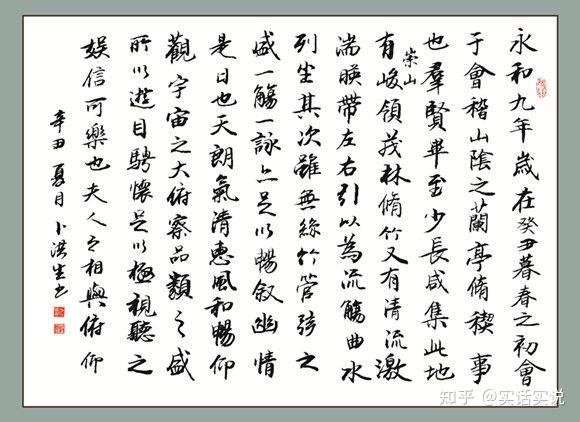 永和九年歲在癸丑暮春之初會
于會稽山陰之蘭亭脩稧事
也羣賢畢至少長咸集此地
有崇山峻領茂林脩竹又有清流激
湍暎帶左右引以為流觴曲水
列坐其次雖無絲竹管弦之
盛一觴一詠亦足以暢叙幽情
是日也天朗氣清惠風和暢仰
觀宇宙之大俯察品類之盛
所以遊目騁懷足以極視聽之
娛信可樂也夫人之相與俯仰
辛丑夏月卜洪生书
知乎 @实话实说